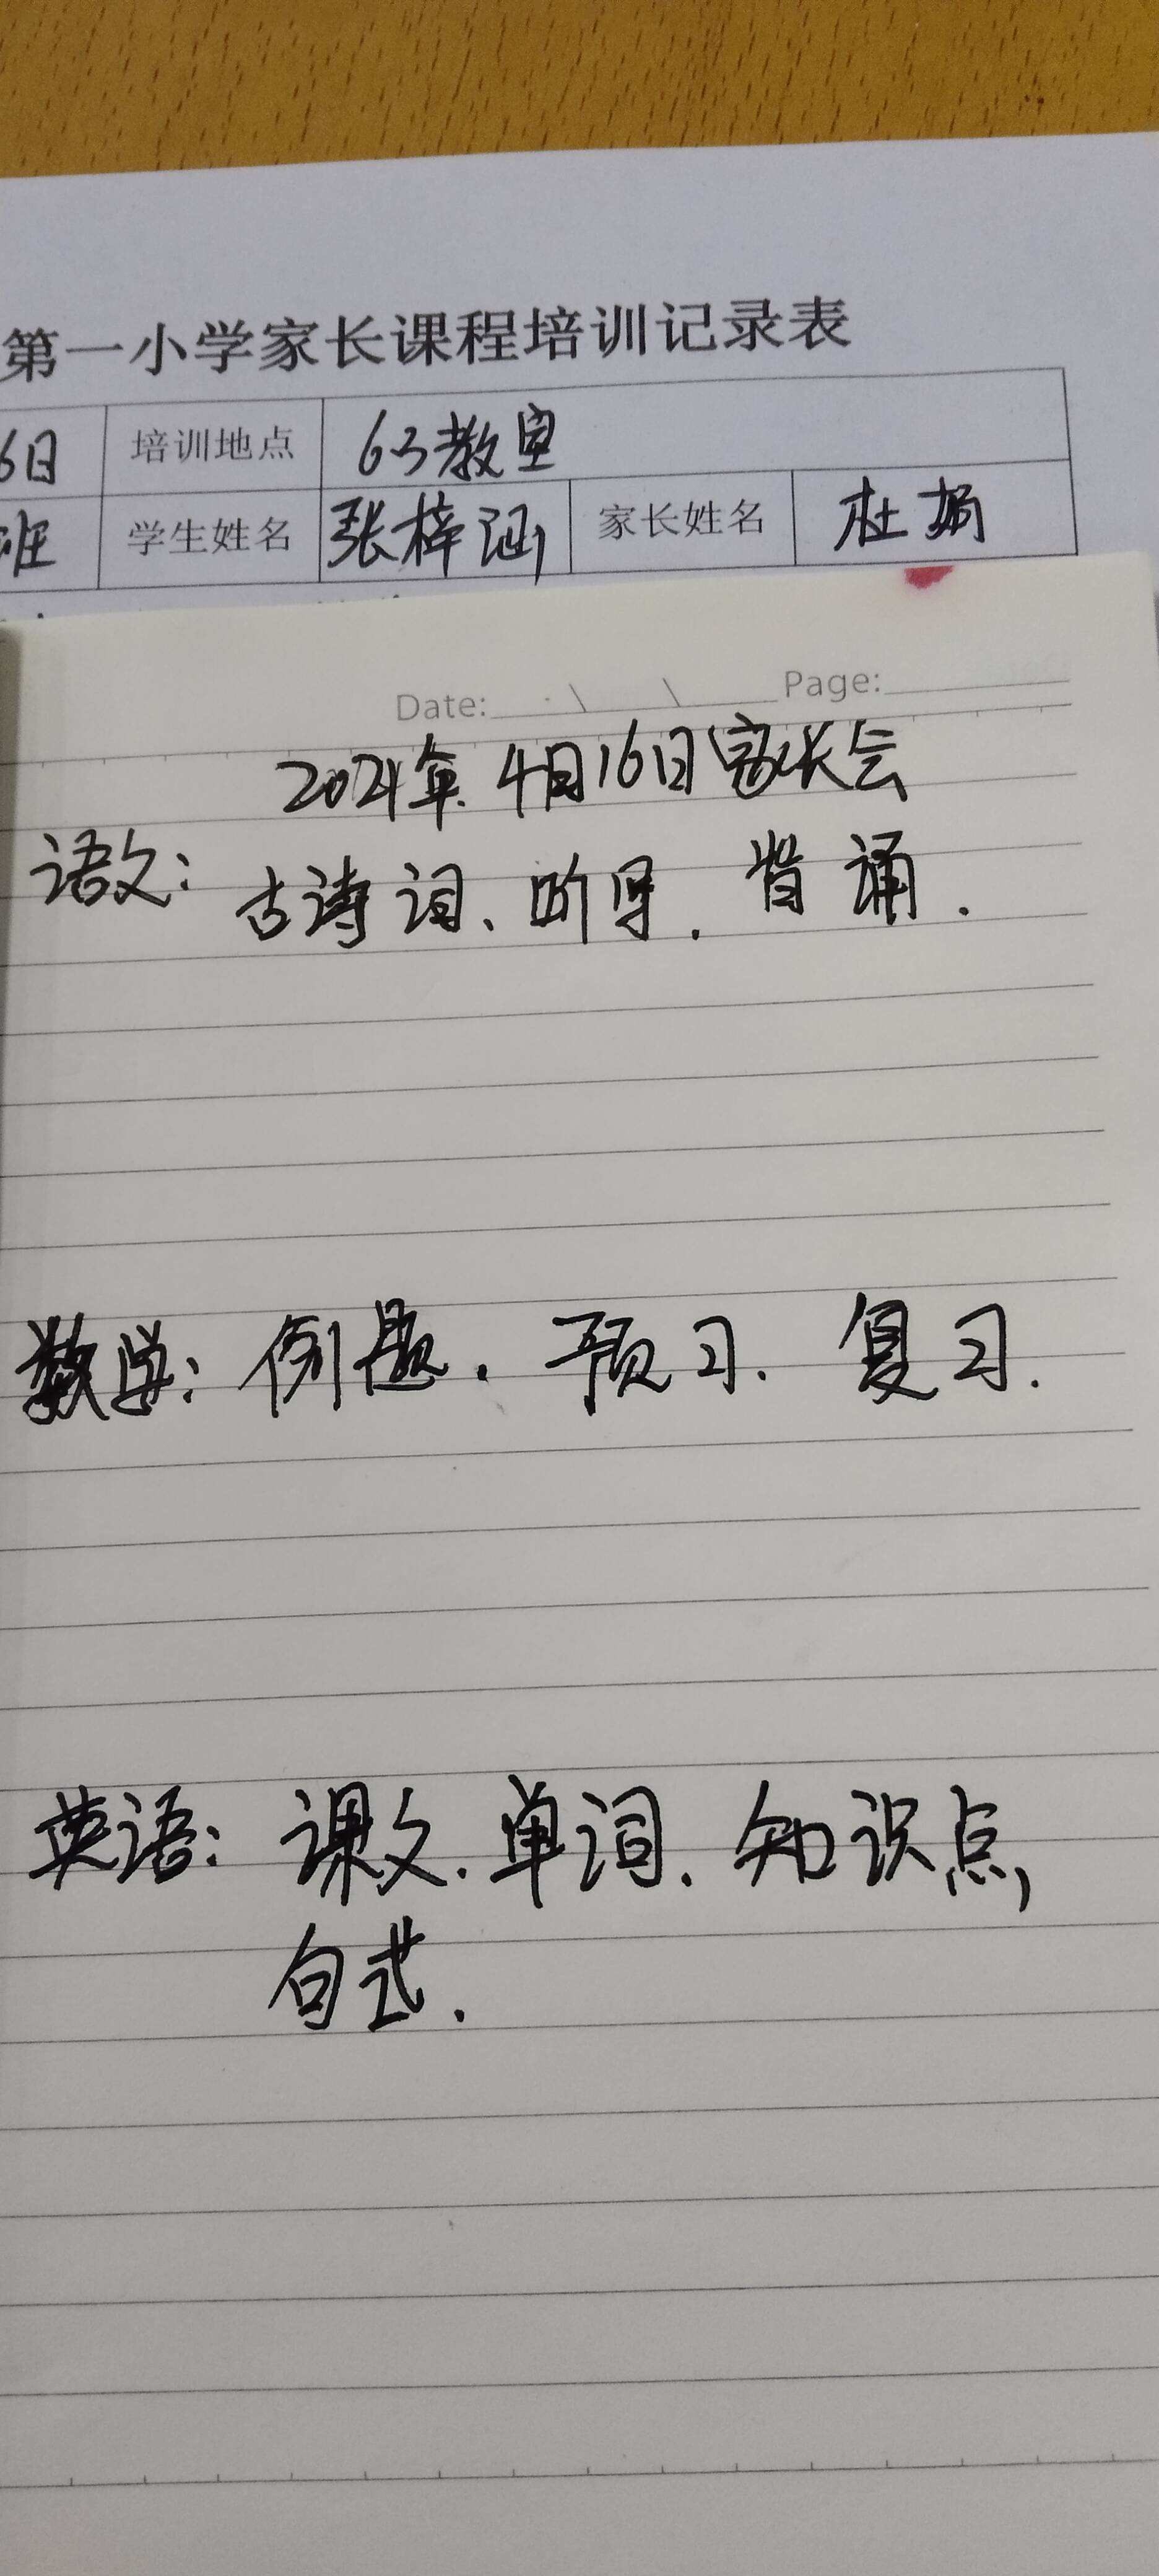 第一小学家长课程培训记录表
6日 培训地点 63教室
班 学生姓名 张梓涵 家长姓名 杜娟
Date: \ \ Page:
2021年.4月16日家长会
语文:
古诗词、 . 背诵.
数学: 例题. 预习. 复习.
英语: 课文.单词. 知识点,
句式.